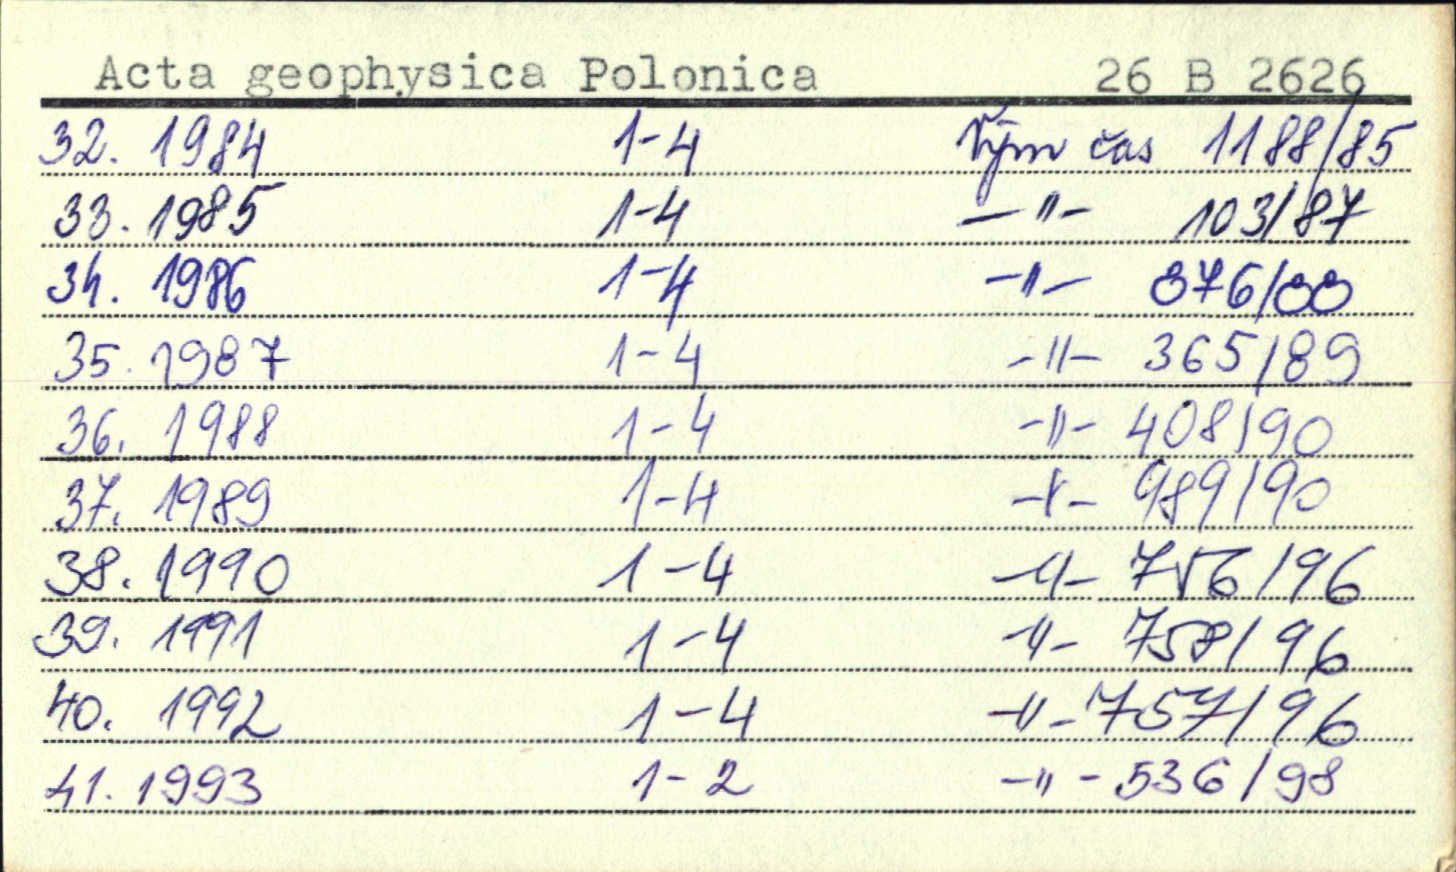 Acta geophysica Polonica 26 B 2626
32. 1984 1-4 Vým čas 1188/85
33. 1985 1-4 -"- 103/87
34. 1986 1-4 -"- 876/88
35. 1987 1-4 -"- 365/89
36. 1988 1-4 -"- 408/90
37. 1989 1-4 -"- 989/90
38. 1990 1-4 -"- 756/96
39. 1991 1-4 -"- 758/96
40. 1992 1-4 -"- 757/96
41. 1993 1-2 -"- 536/98